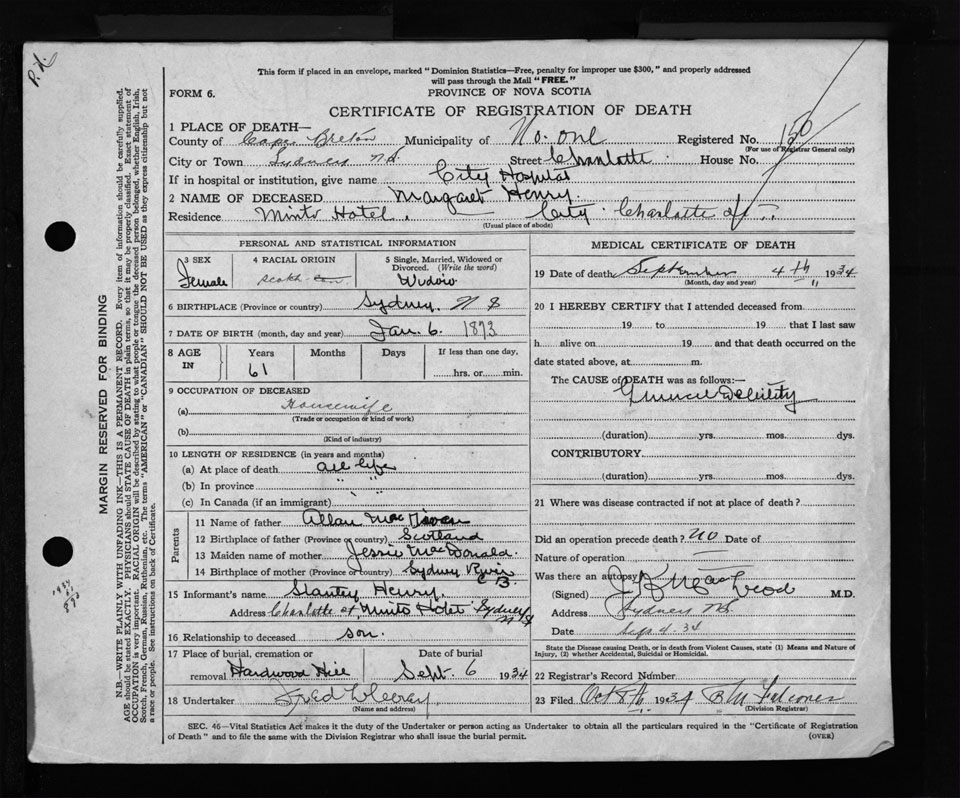 P.K.
This form if placed in an envelope, marked "Dominion Statistics—Free, penalty for improper use $300," and properly addressed
will pass through the Mail "FREE."
FORM 6.
PROVINCE OF NOVA SCOTIA
CERTIFICATE OF REGISTRATION OF DEATH
1 PLACE OF DEATH—
County of Cape Breton Municipality of No. one Registered No. 150
(For use of Registrar General only)
City or Town Sydney N.S. Street Charlotte House No.
If in hospital or institution, give name City Hospital
2 NAME OF DECEASED Margaret Henry
Residence Minto Hotel. City Charlotte st
(Usual place of abode)
PERSONAL AND STATISTICAL INFORMATION
3 SEX Female
4 RACIAL ORIGIN Scotch
5 Single, Married, Widowed or Divorced. (Write the word) Widow
6 BIRTHPLACE (Province or country) Sydney. N S
7 DATE OF BIRTH (month, day and year) Jan. 6. 1873
8 AGE IN Years Months Days If less than one day,
61 hrs. or min.
9 OCCUPATION OF DECEASED
(a) Housewife
(Trade or occupation or kind of work)
(b)
(Kind of industry)
10 LENGTH OF RESIDENCE (in years and months)
(a) At place of death all life
(b) In province " "
(c) In Canada (if an immigrant) "
Parents
11 Name of father Allan Mac
12 Birthplace of father (Province or country) Scotland
13 Maiden name of mother Jessie MacDonald.
14 Birthplace of mother (Province or country) Sydney River C B.
15 Informant's name Stanley Henry.
Address Charlotte st, Minto Hotel Sydney N S
16 Relationship to deceased son.
17 Place of burial, cremation or removal Hardwood Hill
Date of burial Sept. 6 1934
18 Undertaker Fred
(Name and address)
MEDICAL CERTIFICATE OF DEATH
19 Date of death September 4th 1934
(Month, day and year)
20 I HEREBY CERTIFY that I attended deceased from
19 to 19 that I last saw
h alive on 19 and that death occurred on the
date stated above, at m.
The CAUSE of DEATH was as follows:—
General Debility
(duration) yrs. mos. dys.
CONTRIBUTORY
(duration) yrs. mos. dys.
21 Where was disease contracted if not at place of death?
Did an operation precede death? no Date of
Nature of operation
Was there an autopsy
(Signed) J K MacLeod M.D.
Address Sydney NS.
Date Sep 4. 34
State the Disease causing Death, or in death from Violent Causes, state (1) Means and Nature of
Injury, (2) whether Accidental, Suicidal or Homicidal.
22 Registrar's Record Number
23 Filed Oct 8th 1934 B M Falconer
(Division Registrar)
SEC. 46—Vital Statistics Act makes it the duty of the Undertaker or person acting as Undertaker to obtain all the particulars required in the "Certificate of Registration
of Death" and to file the same with the Division Registrar who shall issue the burial permit.
(OVER)
MARGIN RESERVED FOR BINDING
N.B.—WRITE PLAINLY WITH UNFADING INK—THIS IS A PERMANENT RECORD. Every item of information should be carefully supplied.
AGE should be stated EXACTLY. PHYSICIANS should STATE CAUSE OF DEATH in plain terms, so that it may be properly classified. Exact statement of
OCCUPATION is very important. RACIAL ORIGIN will be described by stating to what people or tongue the deceased person belonged, whether English, Irish,
Scotch, French, German, Russian, Ruthenian, etc. The terms "AMERICAN" or "CANADIAN" SHOULD NOT BE USED as they express citizenship but not
a race or people. See instructions on back of Certificate.
1934
61